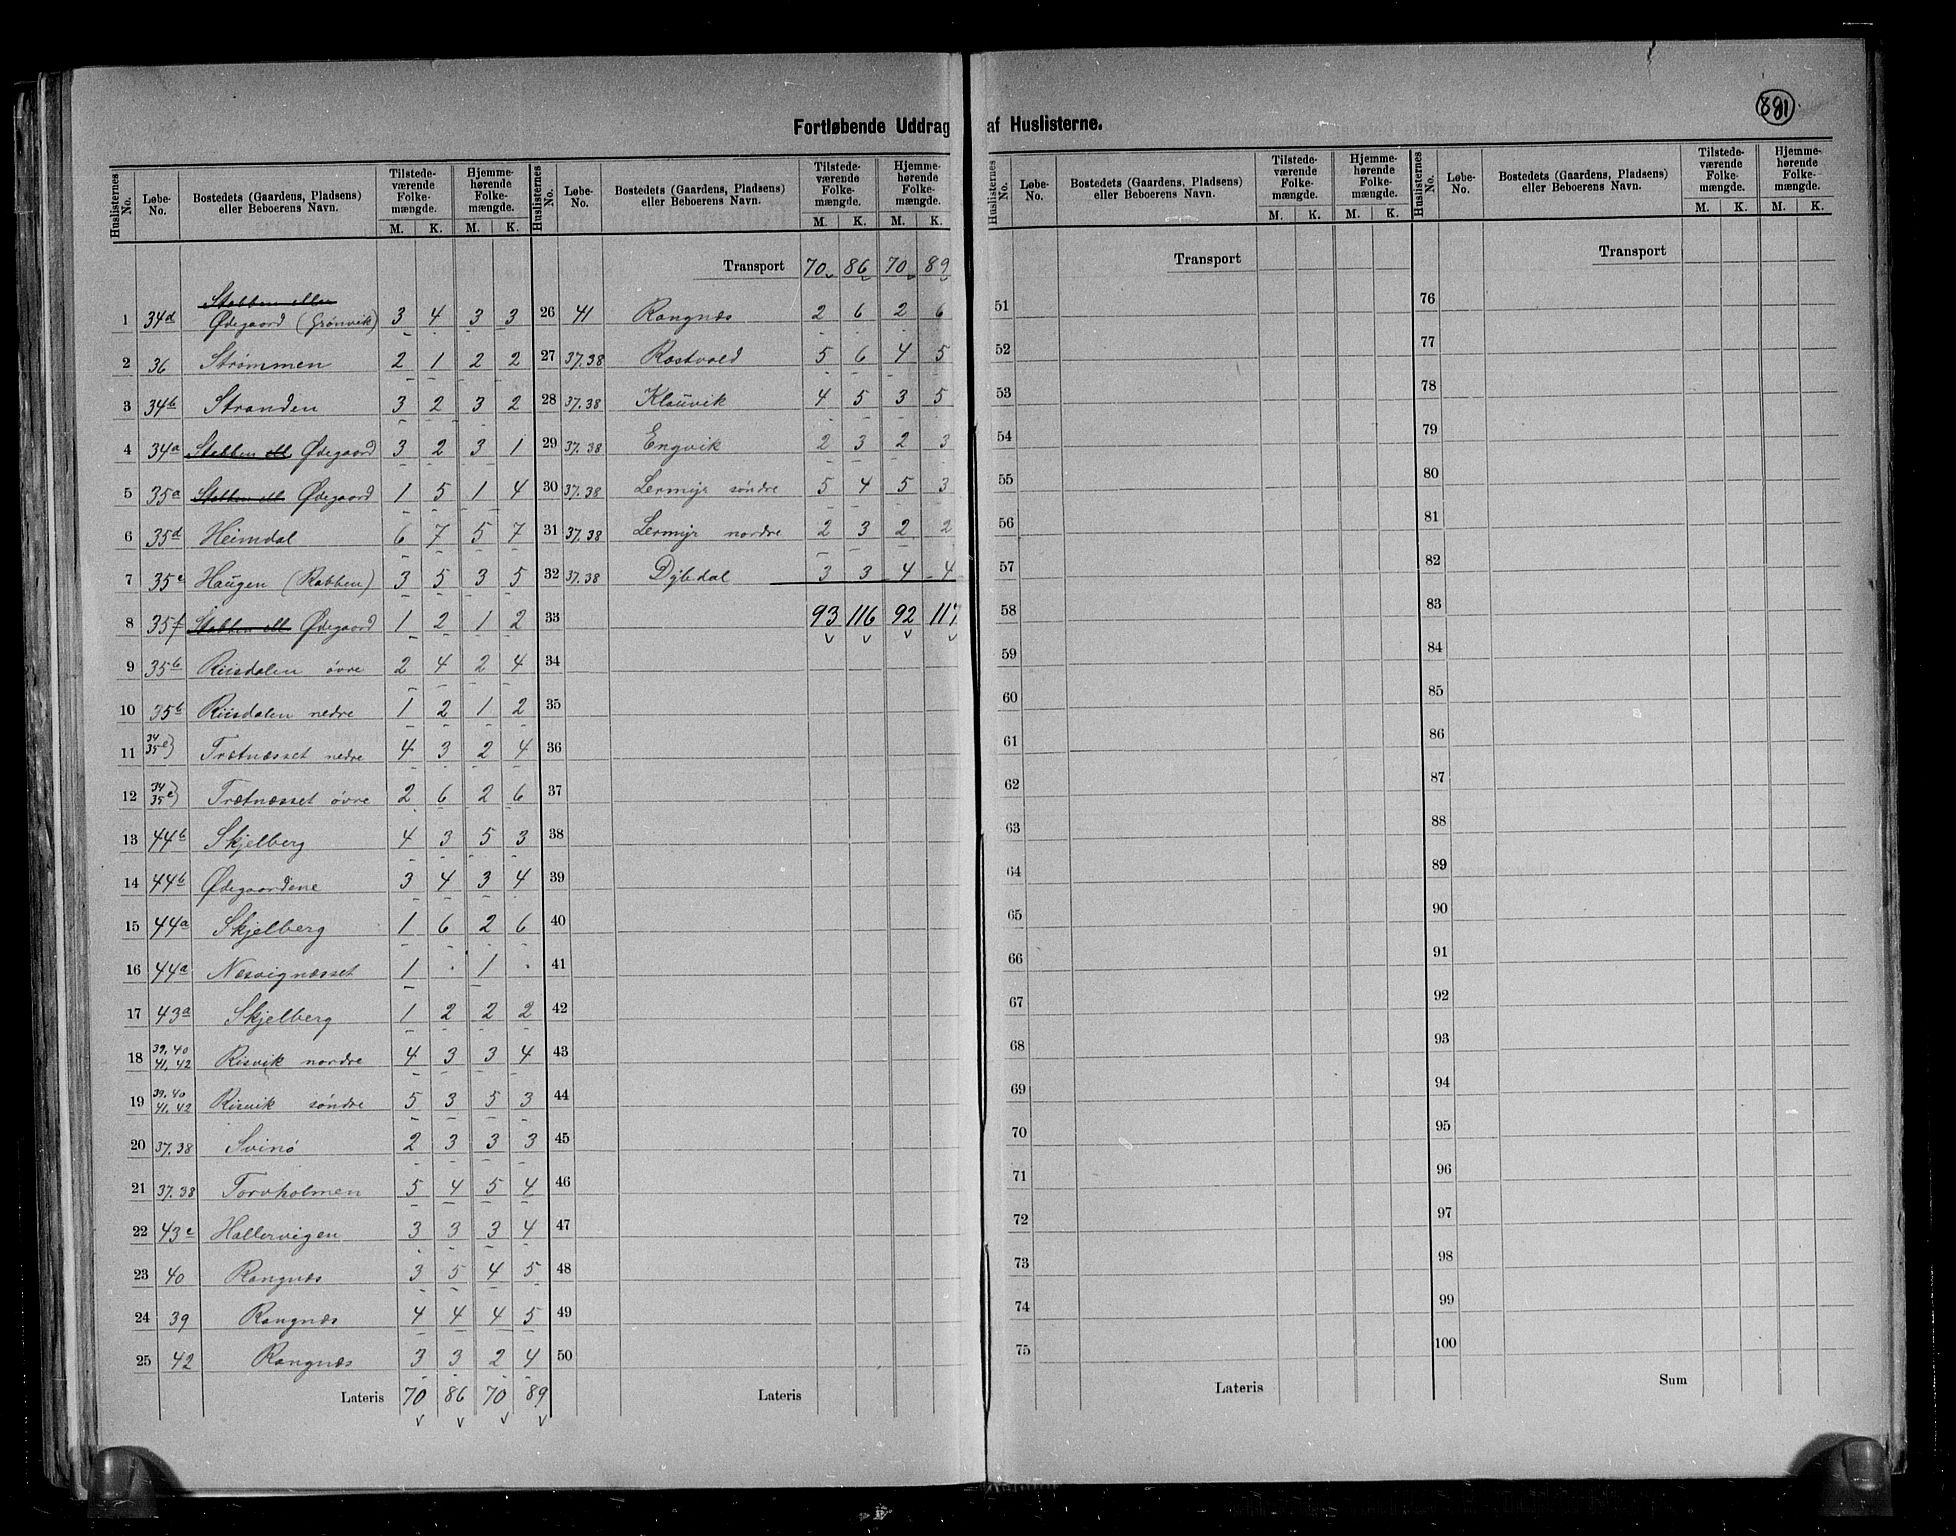 881
Fortløbende Uddrag af Huslisterne.
Huslisternes No. | Løbe-No. | Bostedets (Gaardens, Pladsens) eller Beboerens Navn. | Tilstedeværende Folkemængde. M. K. | Hjemmehørende Folkemængde. M. K.
1 34d Stabben eller Ødegaard (Grønvik) 3 4 3 3
2 36 Strømmen 2 1 2 2
3 34b Stranden 3 2 3 2
4 34a Stabben ell Ødegaard 3 2 3 1
5 35a Stabben ell Ødegaard 1 5 1 4
6 35d Heimdal 6 7 5 7
7 35c Haugen (Rabben) 3 5 3 5
8 35f Stabben ell Ødegaard 1 2 1 2
9 35b Riisdalen øvre 2 4 2 4
10 35b Riisdalen nedre 1 2 1 2
11 34 35e) Trætnæsset nedre 4 3 2 4
12 34 35e) Trætnæsset øvre 2 6 2 6
13 44b Skjelberg 4 3 5 3
14 44b Ødegaardene 3 4 3 4
15 44a Skjelberg 1 6 2 6
16 44a Næsvignæsset 1 . 1 .
17 43a Skjelberg 1 2 2 2
18 39.40 41.42 Risvik nordre 4 3 3 4
19 39.40 41.42 Risvik søndre 5 3 5 3
20 37.38 Svinø 2 3 3 3
21 37.38 Torvholmen 5 4 5 4
22 43c Hallervigen 3 3 3 4
23 40 Rangnæs 3 5 4 5
24 39 Rangnæs 4 4 4 5
25 42 Rangnæs 3 3 2 4
Lateris 70 86 70 89
Huslisternes No. | Løbe-No. | Bostedets (Gaardens, Pladsens) eller Beboerens Navn. | Tilstedeværende Folkemængde. M. K. | Hjemmehørende Folkemængde. M. K.
Transport 70 86 70 89
26 41 Rangnæs 2 6 2 6
27 37.38 Rastvold 5 6 4 5
28 37.38 Klauvik 4 5 3 5
29 37.38 Engvik 2 3 2 3
30 37.38 Lermyr søndre 5 4 5 3
31 37.38 Lermyr nordre 2 3 2 2
32 37.38 Dybdal 3 3 4 4
33 93 116 92 117
34
35
36
37
38
39
40
41
42
43
44
45
46
47
48
49
50
Lateris
Huslisternes No. | Løbe-No. | Bostedets (Gaardens, Pladsens) eller Beboerens Navn. | Tilstedeværende Folkemængde. M. K. | Hjemmehørende Folkemængde. M. K.
Transport
51
52
53
54
55
56
57
58
59
60
61
62
63
64
65
66
67
68
69
70
71
72
73
74
75
Lateris
Huslisternes No. | Løbe-No. | Bostedets (Gaardens, Pladsens) eller Beboerens Navn. | Tilstedeværende Folkemængde. M. K. | Hjemmehørende Folkemængde. M. K.
Transport
76
77
78
79
80
81
82
83
84
85
86
87
88
89
90
91
92
93
94
95
96
97
98
99
100
Sum